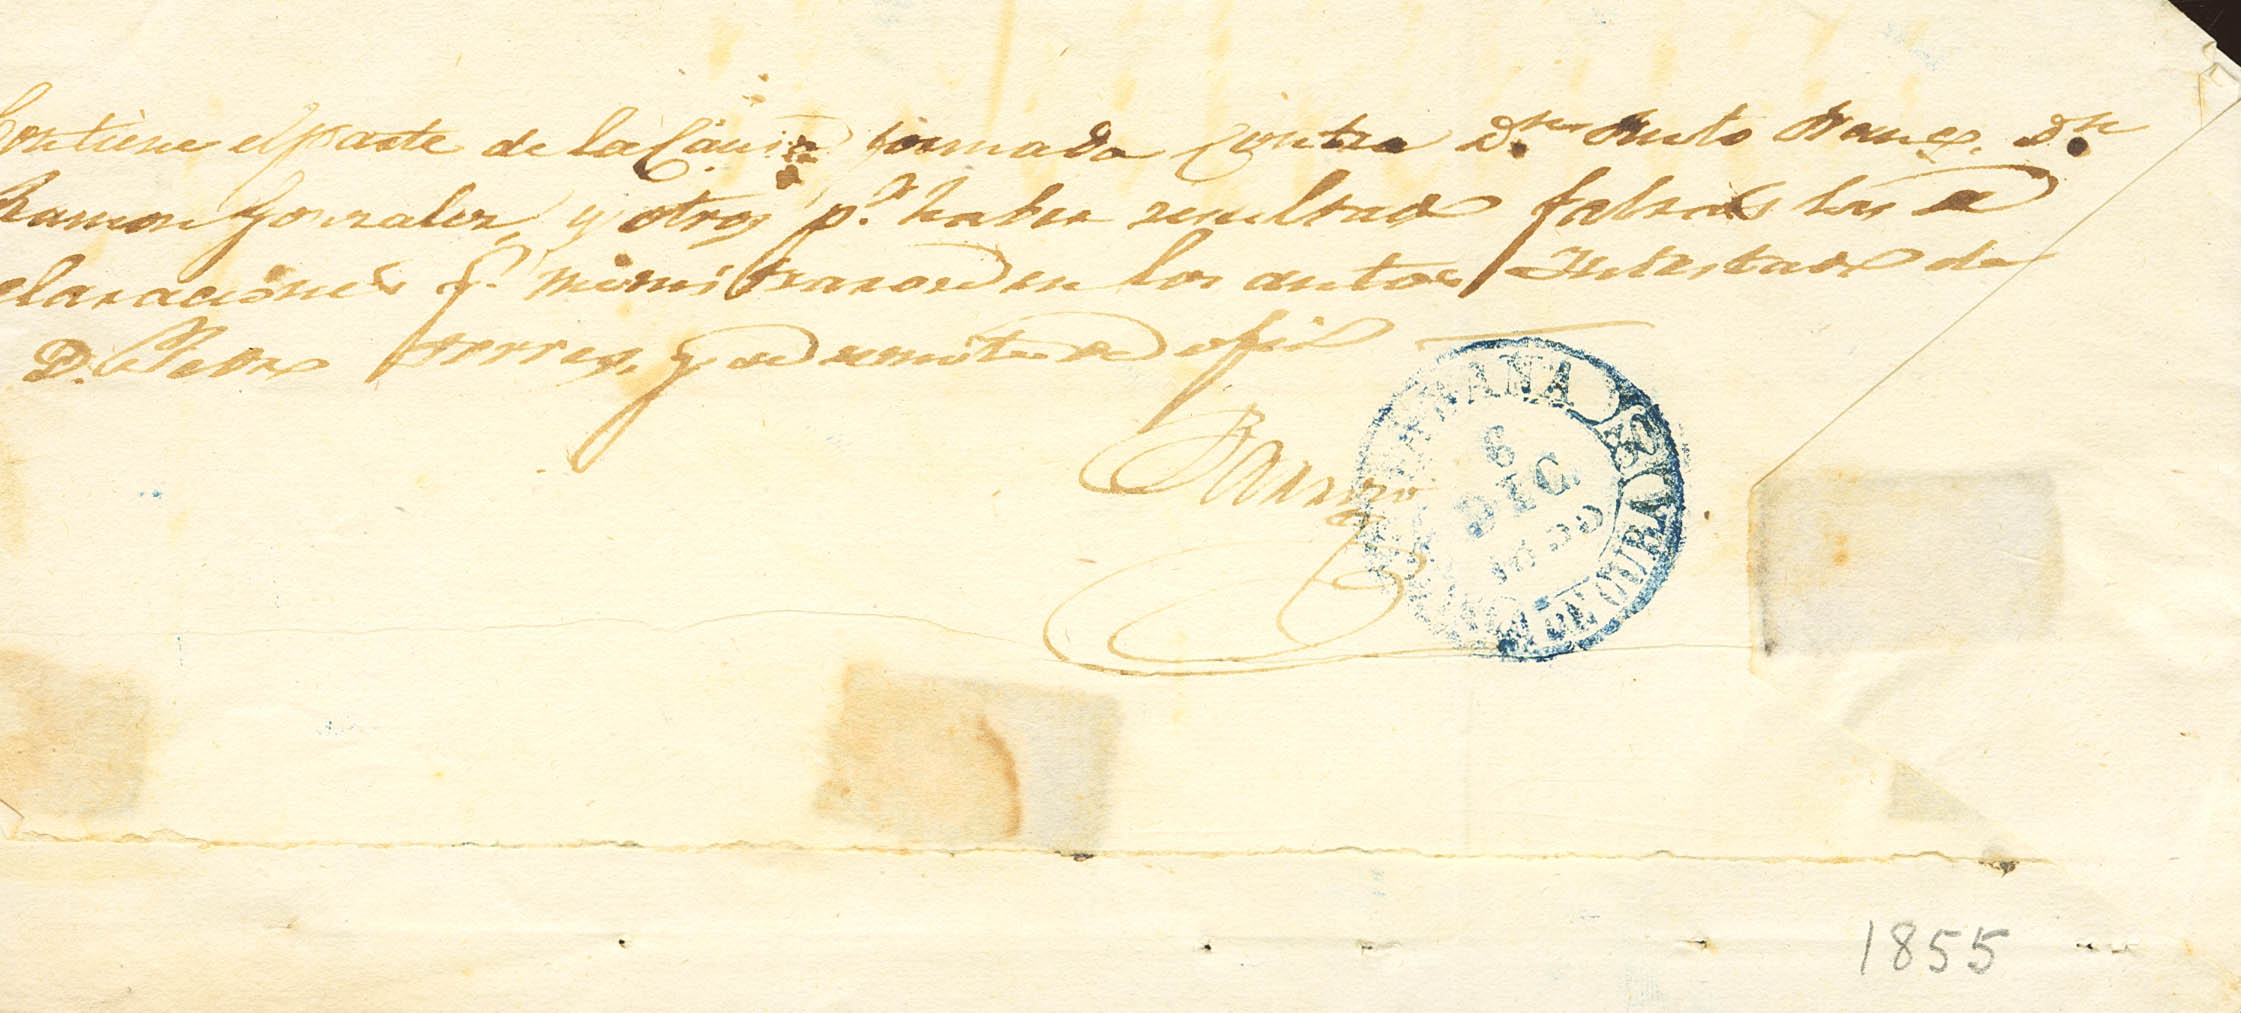 Contiene el parte de la Causa formada Contra Dn. Justo Dn.
Ramon Gonzalez, y otros pr. haber resultado falsas las de
claraciones q. ministraron en los autos Intestado de
D. Pedro Torres, y se remite de ofi
HABANA
6
DIC.
DE CUBA
1855